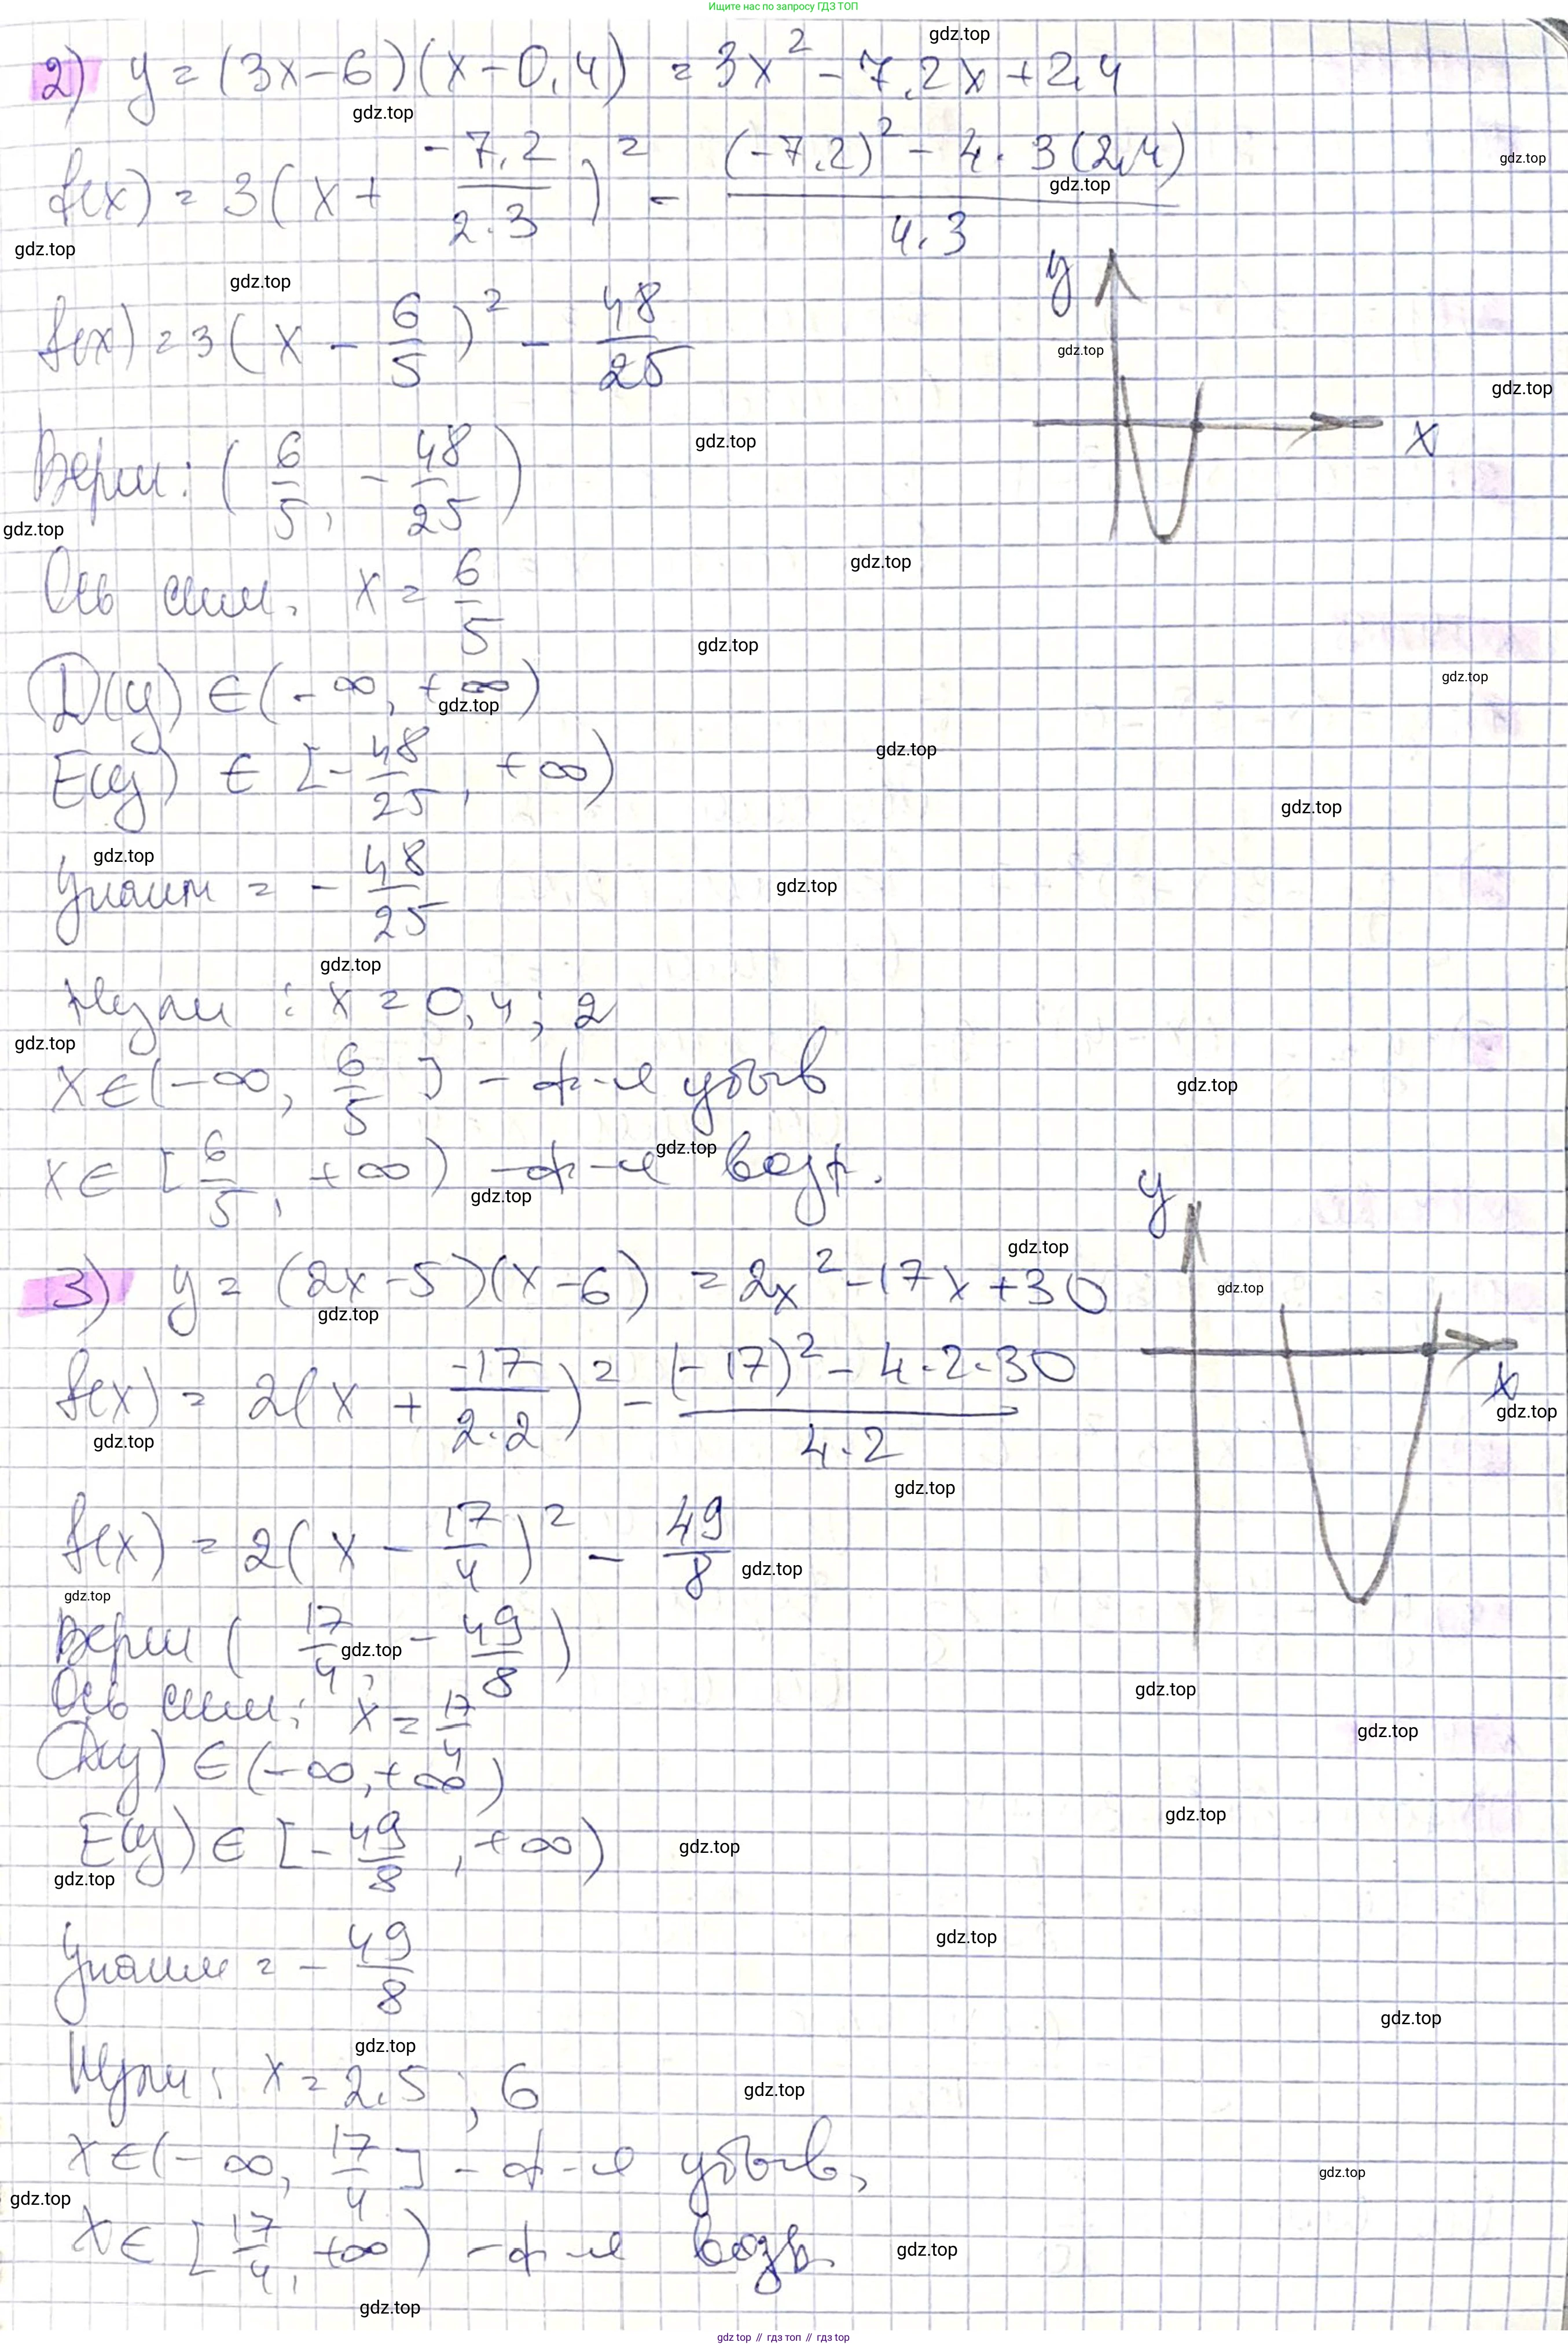 Ищите нас по запросу ГДЗ ТОП
2) y = (3x-6)(x-0,4) = 3x² - 7,2x + 2,4
f(x) = 3(x + -7,2/2·3)² - (-7,2)² - 4·3(2,4)/4·3
f(x) = 3(x - 6/5)² - 48/25
y
x
Верш: (6/5, -48/25)
Ось сим. x = 6/5
D(y) ∈ (-∞, +∞)
E(y) ∈ [-48/25, +∞)
Yнаим = -48/25
Нули : x = 0,4; 2
x ∈ (-∞, 6/5] - ф-я убыв
x ∈ [6/5, +∞) - ф-я возр.
3) y = (2x-5)(x-6) = 2x² - 17x + 30
y
x
f(x) = 2(x + -17/2·2)² - (-17)² - 4·2·30/4·2
f(x) = 2(x - 17/4)² - 49/8
Верш (17/4, -49/8)
Ось сим: x = 17/4
D(y) ∈ (-∞, +∞)
E(y) ∈ [-49/8, +∞)
Yнаим = -49/8
Нули: x = 2,5; 6
x ∈ (-∞, 17/4] - ф-я убыв,
x ∈ [17/4, +∞) - ф-я возр.
gdz.top // гдз топ // gdz.top